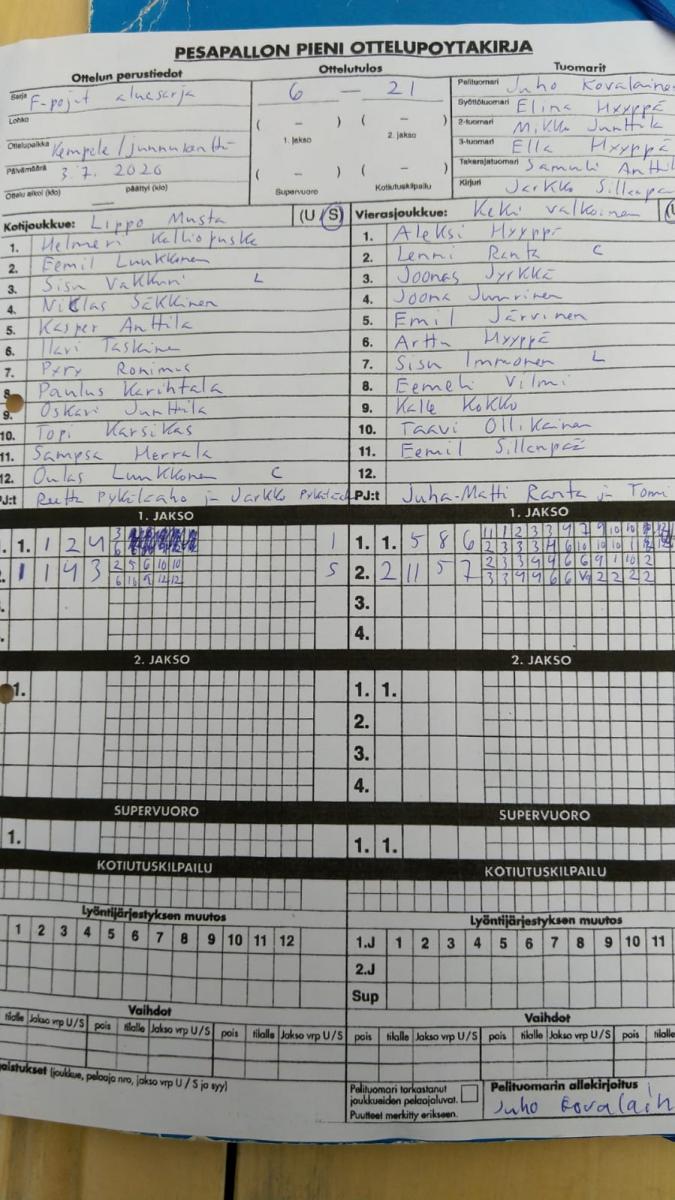 PESAPALLON PIENI OTTELUPOYTAKIRJA
Ottelun perustiedot
Ottelutulos
Tuomarit
Sarja F-pojat aluesarja
6 – 21
Pelituomari Juho Kovalainen
Lohko
Syöttötuomari Elina Hyyppä
( – ) ( – )
2-tuomari Mikko Junttila
1. jakso 2. jakso
Ottelupaikka Kempele / junnukenttä
3-tuomari Ella Hyyppä
Päivämäärä 3.7. 2020
( – ) ( – )
Takarajatuomari Samuli Anttil
Ottelu alkoi (klo) päättyi (klo)
Supervuoro Kotiutuskilpailu
Kirjuri Jarkko Sillanpä
Kotijoukkue: Lippo Musta (U / S)
1. Helmeri Kalliopuska
2. Eemil Luukkonen
3. Sisu Vakkuri L
4. Niklas Säkkinen
5. Kasper Anttila
6. Ilari Taskinen
7. Pyry Ronimus
8. Paulus Karihtala
9. Oskari Junttila
10. Topi Karsikas
11. Sampsa Herrala
12. Oulas Luukkonen C
PJ:t Reetta Pykäläaho ja Jarkko
Vierasjoukkue: Keki valkoinen (U
1. Aleksi Hyyppä
2. Lenni Ranta C
3. Joonas Jyrkkä
4. Joona Juurinen
5. Emil Järvinen
6. Arttu Hyyppä
7. Sisu Immonen L
8. Eemeli Vilmi
9. Kalle Kokko
10. Taavi Ollikainen
11. Eemil Sillanpää
12.
PJ:t Juha-Matti Ranta ja Tomi
1. JAKSO
1. 1 2 4
1
1 1 4 3
2 5 6 10 10
6 10 9 12 12
5
1. JAKSO
1. 1. 5 8 6
11 1 2 3 3 4 7 9 10 10
2 3 3 3 4 6 10 10 10 1
2. 2 11 5 7
2 3 3 4 4 6 6 9 1 10 2
3 3 4 4 6 6 2 2 2 2
3.
4.
2. JAKSO
1.
2. JAKSO
1. 1.
2.
3.
4.
SUPERVUORO
1.
SUPERVUORO
1. 1.
KOTIUTUSKILPAILU
KOTIUTUSKILPAILU
Lyöntijärjestyksen muutos
1 2 3 4 5 6 7 8 9 10 11 12
Lyöntijärjestyksen muutos
1.J 1 2 3 4 5 6 7 8 9 10 11
2.J
Sup
Vaihdot
tilalle Jakso vrp U / S pois tilalle Jakso vrp U / S pois tilalle Jakso vrp U / S
Vaihdot
pois tilalle Jakso vrp U / S pois tilalle Jakso vrp U / S pois tilalle
aistukset (joukkue, pelaaja nro, jakso vrp U / S ja syy)
Pelituomari tarkastanut
joukkueiden pelaajaluvat.
Puutteet merkitty erikseen.
Pelituomarin allekirjoitus
Juho Kovalain